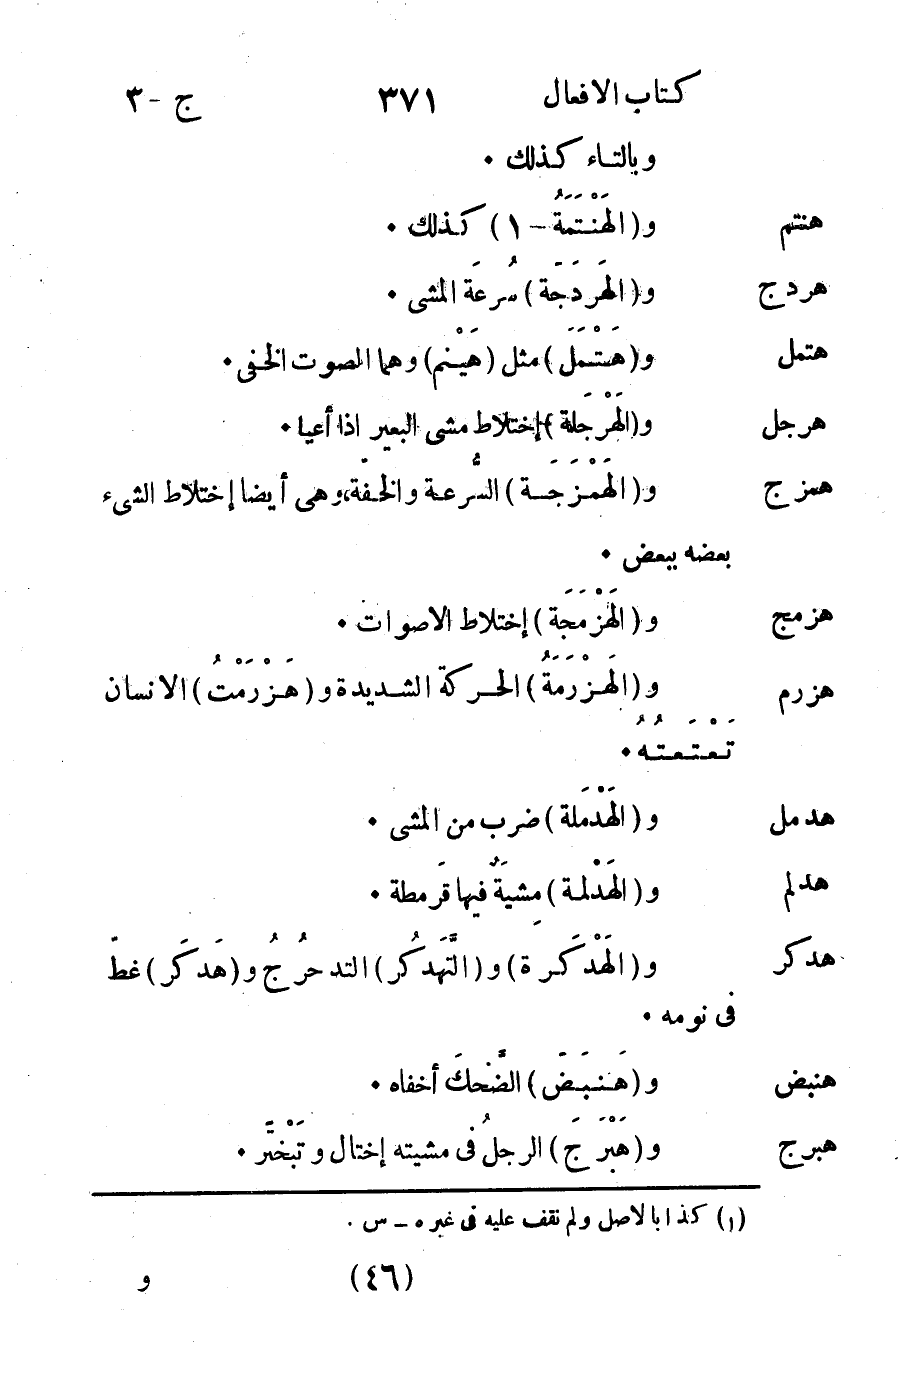 كتاب الافعال ٣٧١ ج - ٣
وبالتاء كذلك •
هنتم و ( الهَنْتَمَةُ - ١ ) كذلك •
هردج و ( الهَرْدَجَة ) سُرعَة المشى •
هتمل و ( هَتْمَلَ ) مثل ( هَيْنَم ) وهما الصوت الخفى •
هرجل و ( الهَرْجَلة ) إختلاط مشى البعير اذا أعيا •
همزج و ( الهَمْزَجَة ) السُّرعة والخفّة، وهى أيضا إختلاط الشىء
بعضه ببعض •
هزمج و ( الهَزْمَجَة ) إختلاط الاصوات •
هزرم و ( الهَزْرَمَةُ ) الحركة الشديدة و ( هَزْرَمْتُ ) الانسان
تَعْتَعتُهُ •
هدمل و ( الهَدْمَلة ) ضرب من المشى •
هدلم و ( الهَدْلمة ) مِشيَةٌ فيها قَرمطة •
هدكر و ( الهَدْكَرة ) و ( التَّهَدكُر ) التدحرُجُ و ( هَدكَر ) غطّ
فى نومه •
هنبض و ( هَنبَضَ ) الضَّحكَ أخفاه •
هبرج و ( هَبْرَجَ ) الرجلُ فى مشيته إختال و تَبَخْتَر •
(١) كذا بالاصل ولم نقف عليه فى غيره – س .
(٤٦) و